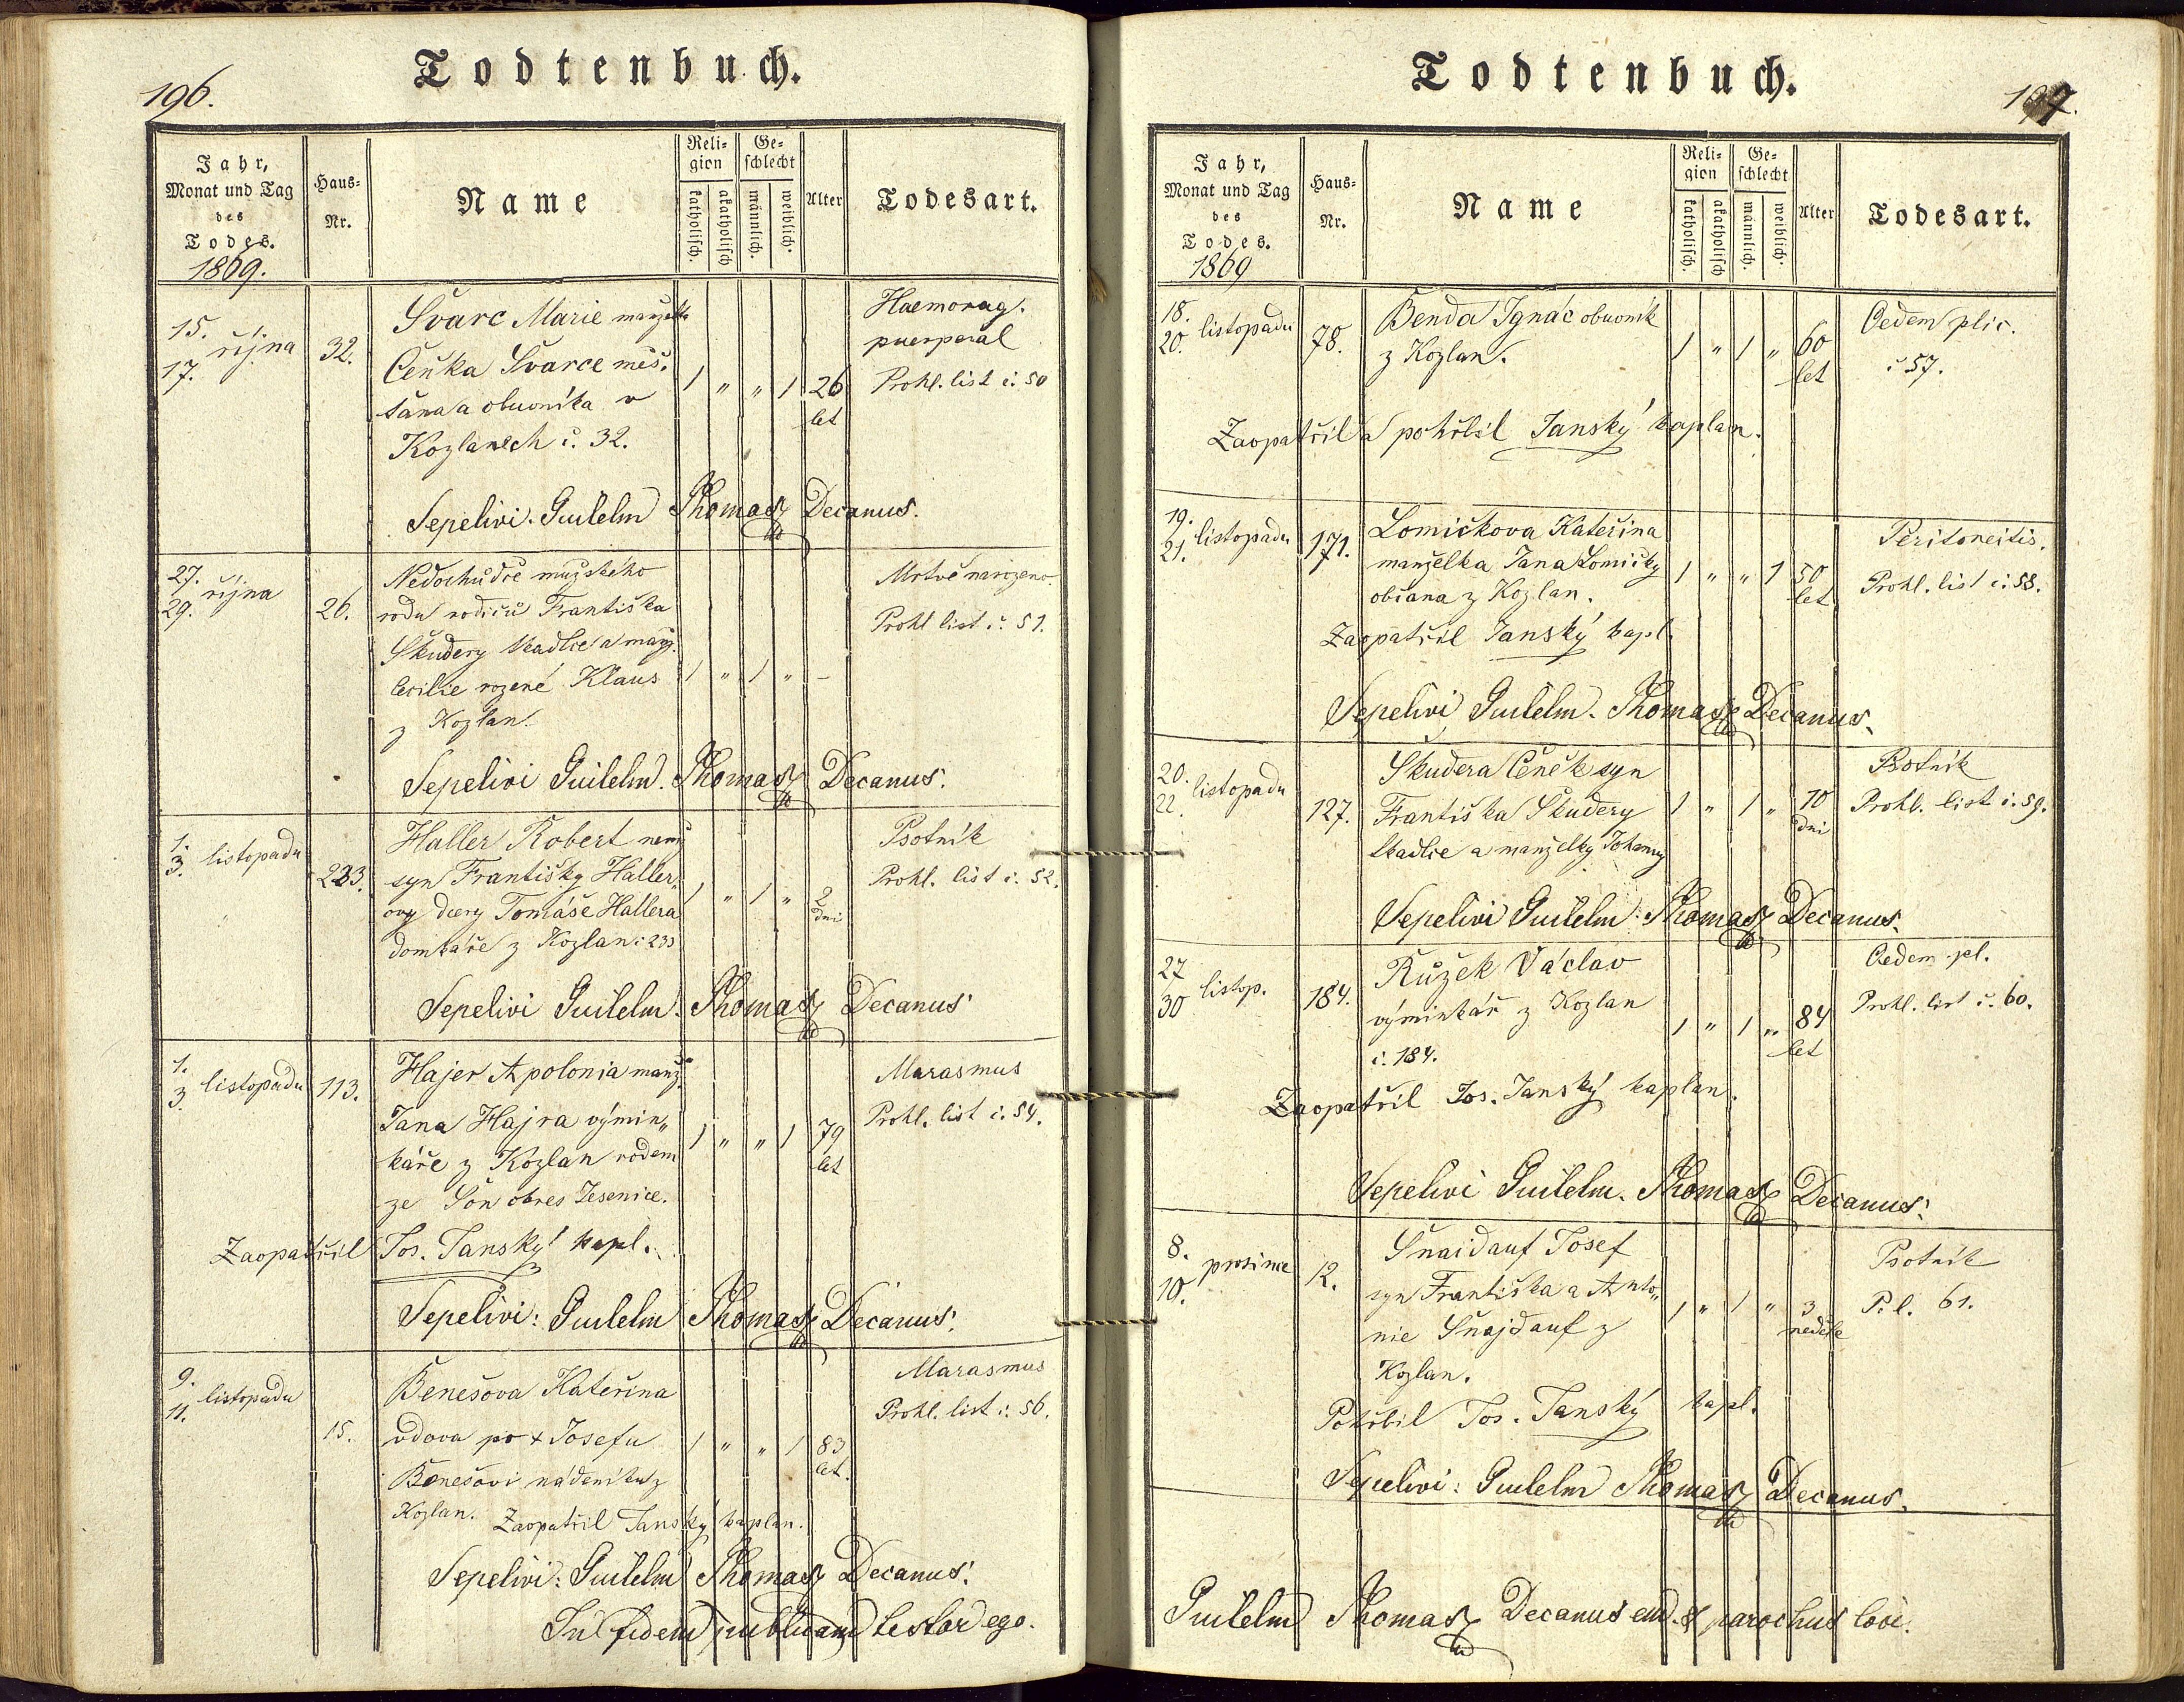 196.
Todtenbuch.
Jahr,
Monat und Tag
des
Todes.
1869.
Haus-
Nr.
Name
Reli-
gion
katholisch.
akatholisch
Ge-
schlecht
männlich.
weiblich.
Alter
Todesart.
15.
17. října
32.
Švarc Marie manželka
Čeňka Švarce měš-
ťana a obuvníka v
Kozlanech č. 32.
1 " " 1 26
let
Haemorag.
puerperal
Prohl. list č. 50
Sepelivi. Guilelm Thomas Decanus.
27.
29. října
26.
Nedochůdče mužského
rodu rodičů Františka
Škudery tkadlce a manž.
Cecilie rozené Klaus
z Kozlan.
1 " 1 " –
Mrtvě narozeno.
Prohl list č. 51.
Sepelivi Guilelm. Thomas Decanus.
1.
3. listopadu
233.
Haller Robert nem.
syn Františky Haller-
ovy dcery Tomáše Hallera
domkáře z Kozlan č 233
1 " 1 " 2
dni
Psotník
Prohl. list č. 52.
Sepelivi Guilelm. Thomas Decanus
1.
3. listopadu
113.
Hajer Apolonia manž.
Jana Hajra výmin„
káře z Kozlan rodem
ze Son okres Jesenice.
1 " " 1 79
let
Marasmus
Prohl. list č. 54.
Zaopatřil Jos. Janský kapl.
Sepelivi: Guilelm Thomas Decanus.
9.
11. listopadu
15.
Benešova Kateřina
vdova po + Josefu
Benešovi nádeníku z
Kozlan. Zaopatřil Janský kaplan.
1 " " 1 83
let.
Marasmus
Prohl. list č. 56.
Sepelivi: Guilelm Thomas Decanus.
In fidem publicam testor ego.
197.
Todtenbuch.
Jahr,
Monat und Tag
des
Todes.
1869
Haus-
Nr.
Name
Reli-
gion
katholisch.
akatholisch
Ge-
schlecht
männlich.
weiblich.
Alter
Todesart.
18.
20. listopadu
78.
Benda Ignác obuvník
z Kozlan.
1 " 1 " 60
let
Oedem plic.
č 57.
Zaopatřil a pohřbil Janský kaplan.
19.
21. listopadu
171.
Lomičkova Kateřina
manželka Jana Lomičky
občana z Kozlan.
1 " " 1 50
let
Peritoneitis.
Prohl. list č. 58.
Zaopatřil Janský kapl.
Sepelivi Guilelm. Thomas Decanus.
20.
22. listopadu
127.
Škudera Čeněk syn
Františka Škudery
tkadlce a manželky Johanny
1 " 1 " 10
dni
Psotník
Prohl. list č. 59.
Sepelivi Guilelm. Thomas Decanus.
27
30 listop.
184.
Růžek Václav
výminkář z Kozlan
č. 184.
1 " 1 " 84
let
Oedem pl.
Prohl. list č. 60.
Zaopatřil Jos. Janský kaplan.
Sepelivi Guilelm. Thomas Decanus.
8.
10. prosince
12.
Šnaidauf Josef
syn Františka a Anto„
nie Šnajdauf z
Kozlan.
1 " 1 " 3
neděle
Psotník
P. l. 61.
Pohřbil Jos. Janský kapl.
Sepelivi: Guilelm Thomas Decanus.
Guilelm Thomas Decanus end. & parochus loci.